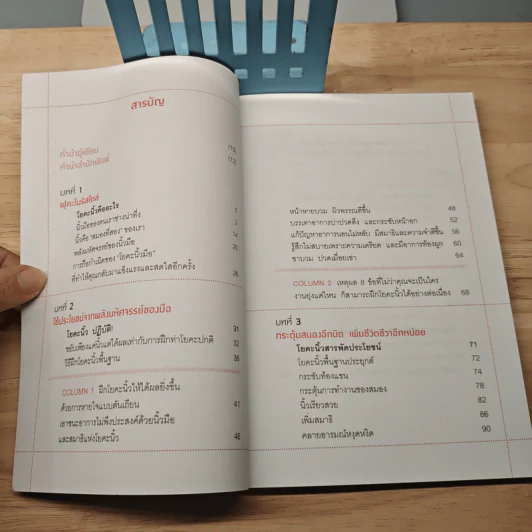 สารบัญ
คำนำผู้เขียน (10)
คำนำสำนักพิมพ์ (12)
บทที่ 1
โยคะนิ้วคืออะไร 1
นิ้วมือของคนเราช่างน่าทึ่ง 2
นิ้วคือ "สมองที่สอง" ของเรา 14
พลังมหัศจรรย์ของนิ้วมือ 20
การถือกำเนิดของ "โยคะนิ้วมือ"
ที่ทำให้คุณกลับมาแข็งแรงและสดใสอีกครั้ง 26
บทที่ 2
ใช้ประโยชน์จากพลังมหัศจรรย์ของมือ
โยคะนิ้ว ปฏิบัติ! 31
ขยับเพียงแค่นิ้วแต่ได้ผลเท่ากับการฝึกท่าโยคะปกติ 32
วิธีฝึกโยคะนิ้วพื้นฐาน 36
COLUMN 1 ฝึกโยคะนิ้วให้ได้ผลยิ่งขึ้น
ด้วยการหายใจแบบตันเถียน 41
เอาชนะอาการไม่พึงประสงค์ด้วยนิ้วมือ
และสมาธิแห่งโยคะนิ้ว 46
หน้าหายบวม ผิวพรรณดีขึ้น 48
บรรเทาอาการบ่าปวดตึง และกระชับหน้าอก 52
แก้ปัญหาอาการนอนไม่หลับ มีสมาธิและความจำดีขึ้น 56
รู้สึกไม่สบายเพราะความเครียด และมีอาการท้องผูก 60
ขาบวม ปวดเมื่อยเข่า 64
COLUMN 2 เหตุผล 8 ข้อที่ไม่ว่าคุณจะเป็นใคร
งานยุ่งแค่ไหน ก็สามารถฝึกโยคะนิ้วได้อย่างต่อเนื่อง 68
บทที่ 3
กระตุ้นสมองอีกนิด เพิ่มชีวิตชีวาอีกหน่อย
โยคะนิ้วสารพัดประโยชน์ 71
โยคะนิ้วพื้นฐานประยุกต์ 72
กระชับท้องแขน 74
กระตุ้นการทำงานของสมอง 78
นิ้วเรียวสวย 82
เพิ่มสมาธิ 86
คลายอารมณ์หงุดหงิด 90